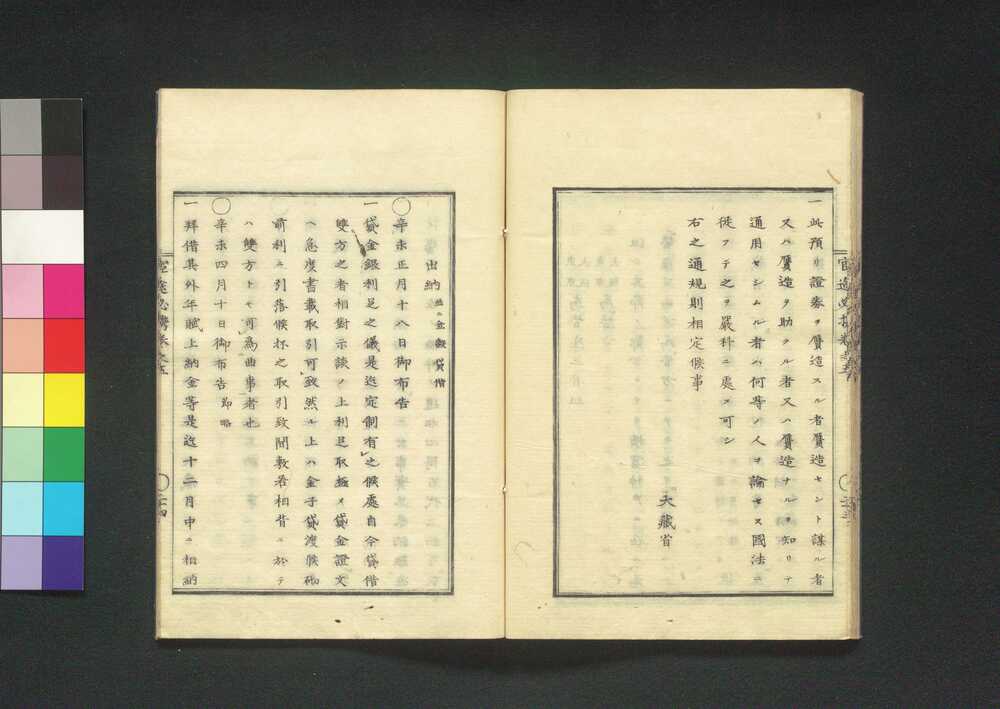 一此預リ證券ヲ贋造スル者贋造セント謀ル者
又ハ贋造ヲ助クル者又ハ贋造ナルヲ知リテ
通用セシムル者ハ何等ノ人ヲ論セス國法ニ
従フテ之ヲ嚴科ニ處ス可シ
右之通規則相定候事
大藏省
出納 並ニ金銀貸借
○辛未正月十八日御布告
一貸金銀利足之儀是迄定制有之候處自今貸借
雙方之者相對示談ノ上利足取極メ貸金證文
ヘ急度書載取引可致然ル上ハ金子貸渡候砌
前利ニ引落候抔之取引致間敷若相背ニ於テ
ハ雙方トモ可為曲事者也
○辛未四月十日御布告 節略
一拜借其外年賦上納金等是迄十二月中ニ相納